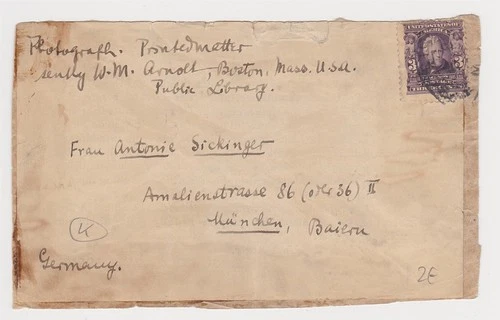 Photograph. Printedmatter
sent by W.M. Arnolt, Boston, Mass. U.S.A.
Public Library.
UNITED STATES OF
AMERICA
3
3
Frau Antonie Sickinger
Amalienstrasse 86 (oder 36) II
München, Baiern
K
Germany.
2€